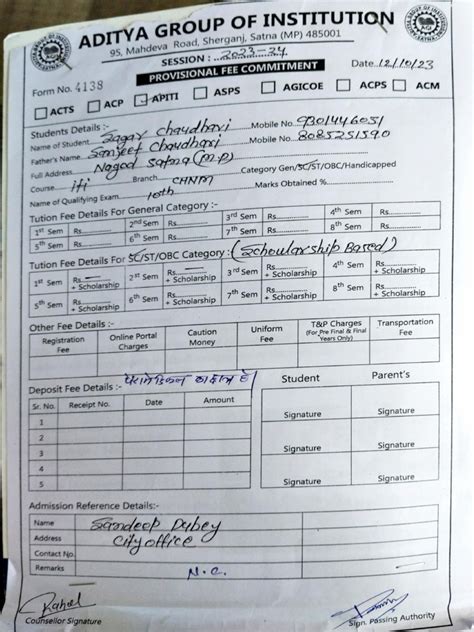 ADITYA GROUP OF INSTITUTION
95, Mahdeva Road, Sherganj, Satna (MP) 485001
SESSION : 2023-24
PROVISIONAL FEE COMMITMENT
Form No. 4138 Date 12/10/23
ACTS ACP APITI ASPS AGICOE ACPS ACM
Students Details :-
Name of Student Sagar Chaudhari Mobile No. 9301446051
Father's Name Sanjeet Chaudhari Mobile No. 8085251590
Full Address Nagod Satna (M.P)
Course iti Branch CHNM Category Gen/SC/ST/OBC/Handicapped
Name of Qualifying Exam 10th Marks Obtained %
Tution Fee Details For General Category :-
1st Sem Rs. 2nd Sem Rs. 3rd Sem Rs. 4th Sem Rs.
5th Sem Rs. 6th Sem Rs. 7th Sem Rs. 8th Sem Rs.
Tution Fee Details For SC/ST/OBC Category :- (Schoularship Based)
1st Sem Rs. + Scholarship 2nd Sem Rs. + Scholarship 3rd Sem Rs. + Scholarship 4th Sem Rs. + Scholarship
5th Sem Rs. + Scholarship 6th Sem Rs. + Scholarship 7th Sem Rs. + Scholarship 8th Sem Rs. + Scholarship
Other Fee Details :-
Registration Fee Online Portal Charges Caution Money Uniform Fee T&P Charges (For Pre Final & Final Years Only) Transportation Fee
Deposit Fee Details :-
Sr. No. Receipt No. Date Amount Student Parent's
1 Signature Signature
2
3 Signature Signature
4
5 Signature Signature
Admission Reference Details:-
Name Sandeep Dubey
Address City office
Contact No.
Remarks N.C.
Rahul
Counsellor Signature Sign. Passing Authority